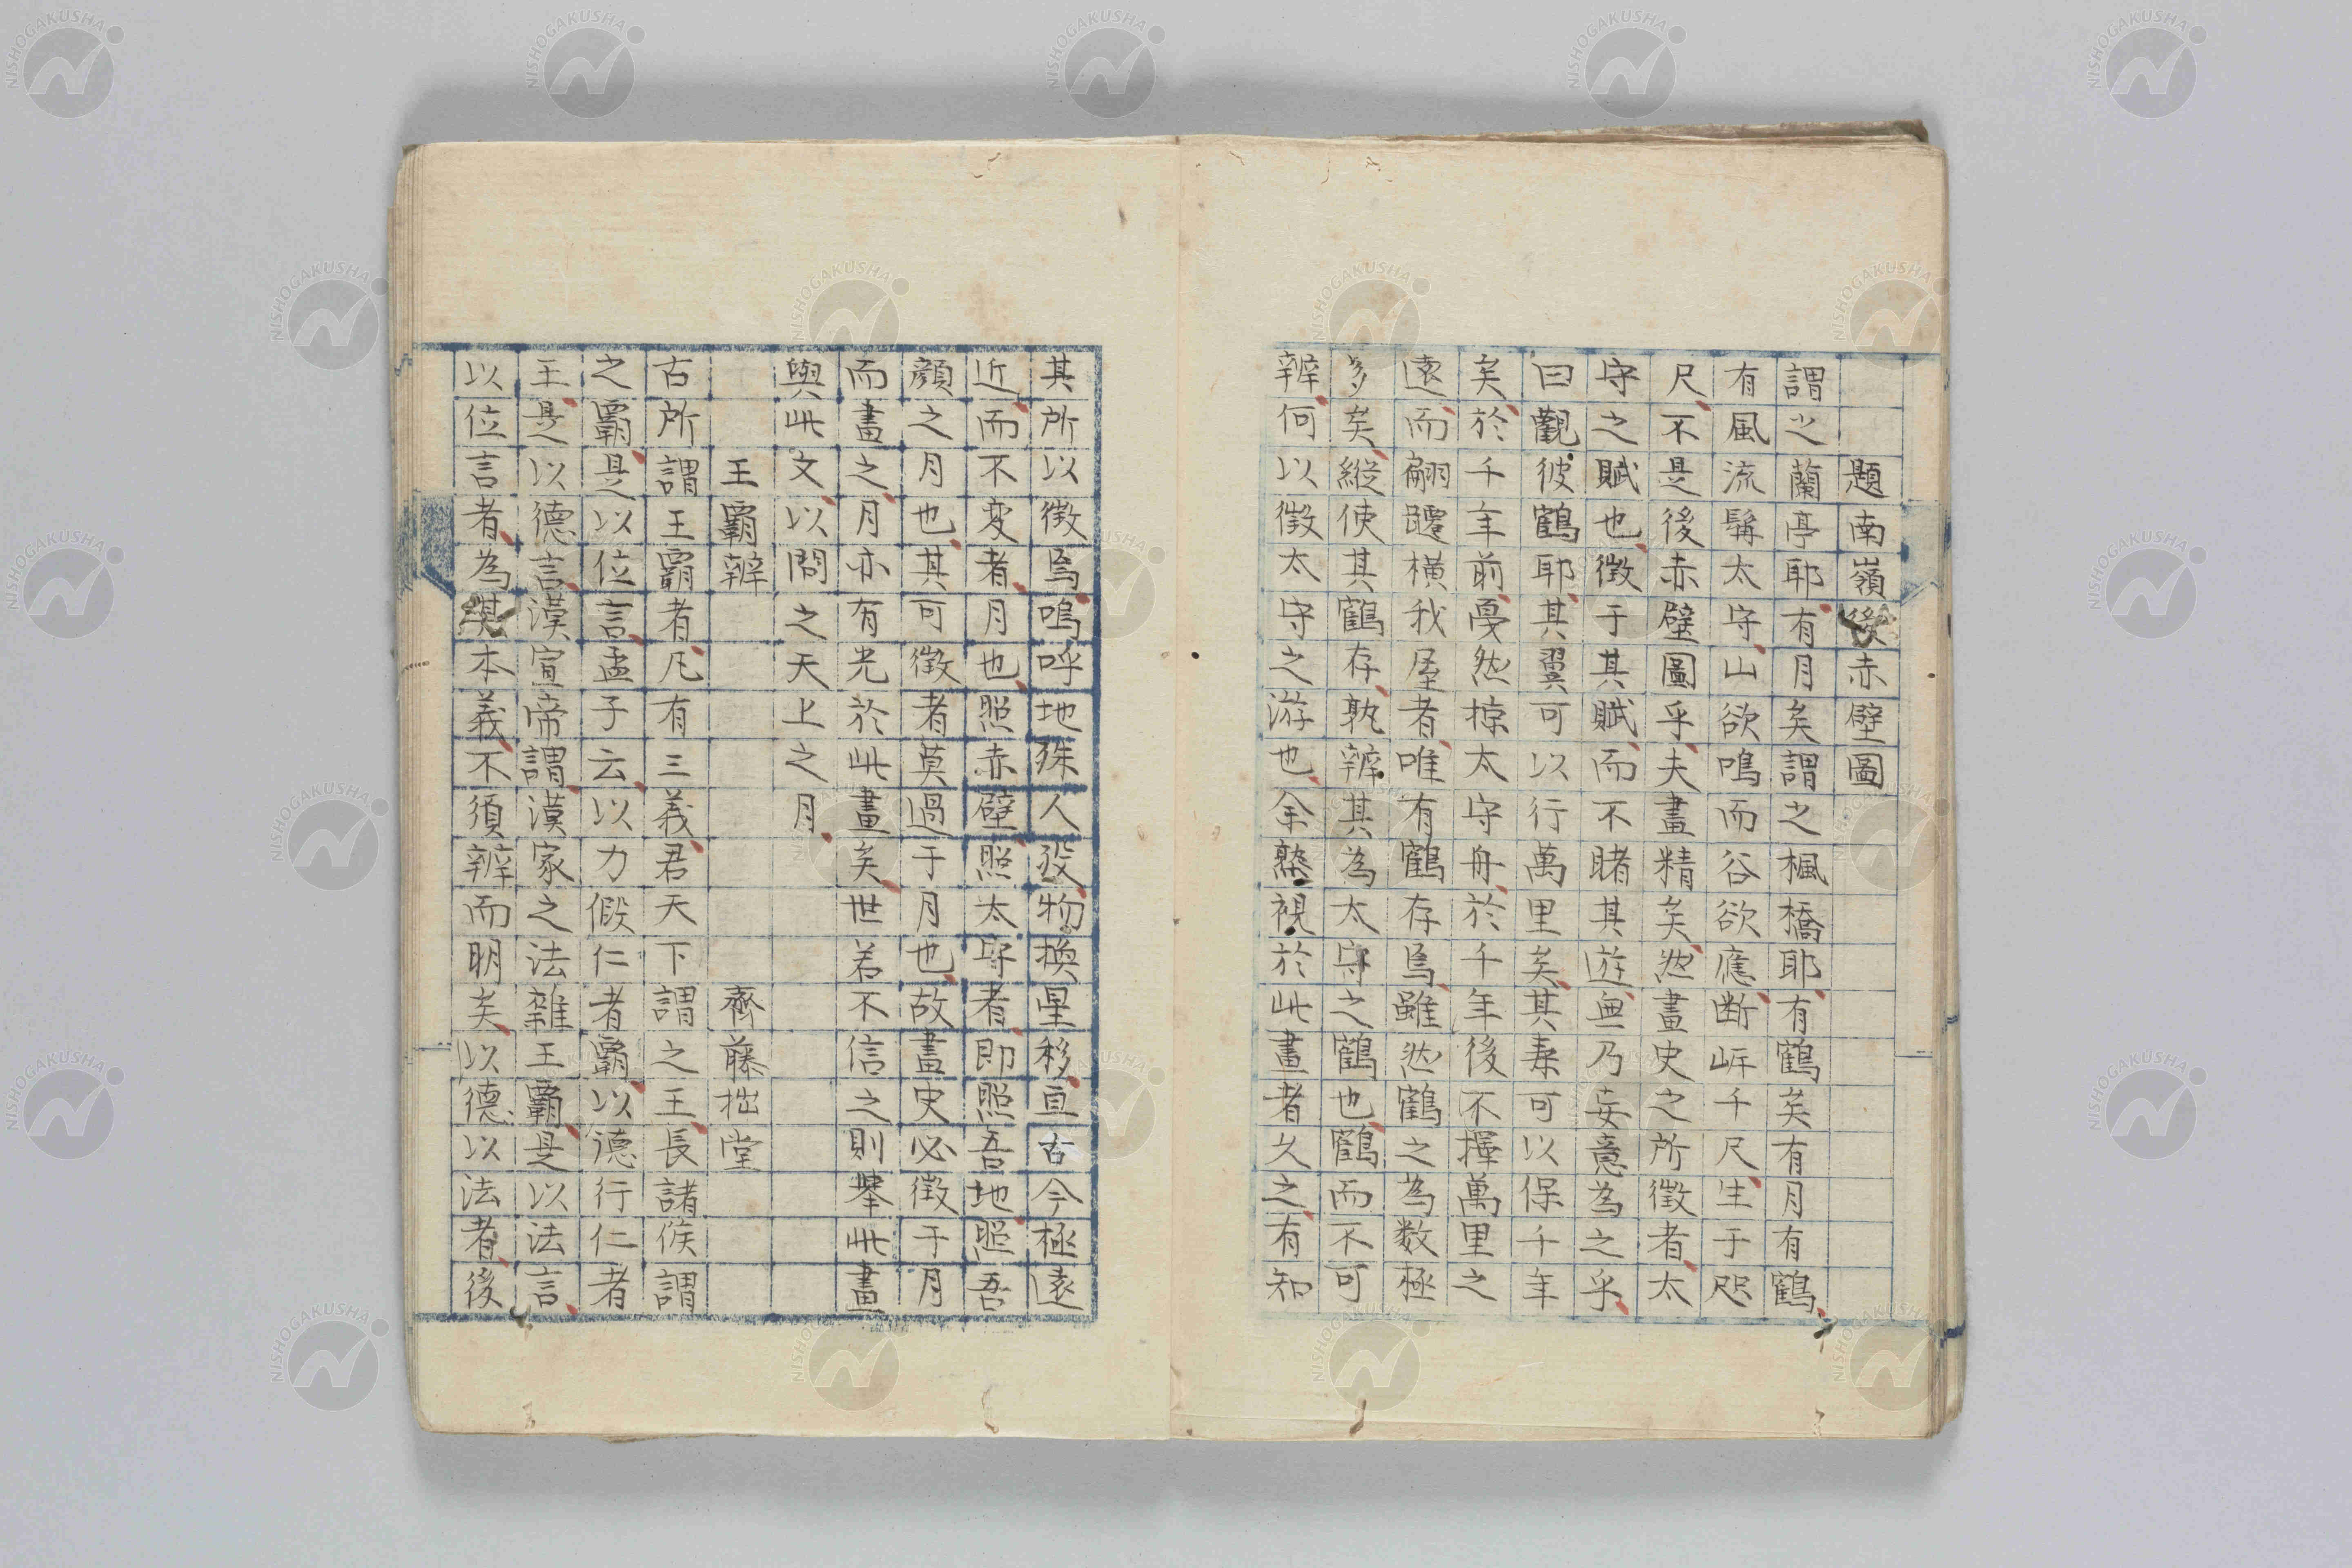 題南嶺後赤壁圖
謂之蘭亭耶有月矣謂之楓橋耶有鶴矣有月有鶴
有風流髯太守山欲鳴而谷欲應断岸千尺生于咫
尺不是後赤壁圖乎夫畫精矣然畫史之所徴者太
守之賦也徴于其賦而不睹其遊無乃妄意為之乎
曰觀彼鶴耶其翼可以行萬里矣其壽可以保千年
矣於千年前戞然掠太守舟於千年後不擇萬里之
遠而翩躚横我屋者唯有鶴存焉雖然鶴之為数極
多矣縦使其鶴存孰辨其為太守之鶴也鶴而不可
辨何以徴太守之游也余熟視於此畫者久之有知
其所以徴焉嗚呼地殊人没物換星移亘古今極遠
近而不変者月也照赤壁照太守者即照吾地照吾
顔之月也其可徴者莫過于月也故畫史必徴于月
而畫之月亦有光於此畫矣世若不信之則舉此畫
與此文以問之天上之月
王霸辨 齊藤拙堂
古所謂王霸者凡有三義君天下謂之王長諸侯謂
之霸是以位言孟子云以力假仁者霸以德行仁者
王是以德言漢宣帝謂漢家之法雜王霸是以法言
以位言者為本義不須辨而明矣以德以法者後
NISHOGAKUSHA